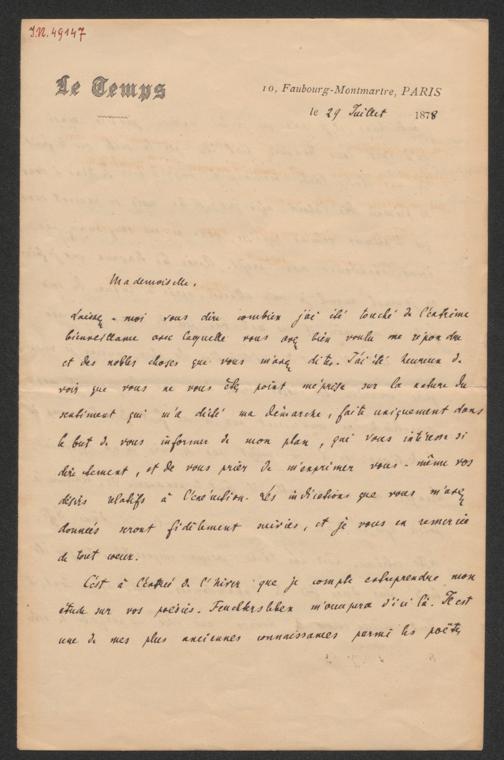 I.N. 49147
Le Temps
10, Faubourg-Montmartre, PARIS
le 29 Juillet 1878
Mademoiselle,
Laissez-moi vous dire combien j'ai été touché de l'extrême
bienveillance avec laquelle vous avez bien voulu me répondre
et des nobles choses que vous m'avez dites. J'ai été heureux de
voir que vous ne vous êtes point méprise sur la nature du
sentiment qui m'a dicté ma démarche, faite uniquement dans
le but de vous informer de mon plan, qui vous intéresse si
directement, et de vous prier de m'exprimer vous-même vos
désirs relatifs à l'exécution. Les indications que vous m'avez
données seront fidèlement suivies, et je vous en remercie
de tout coeur.
C'est à l'entrée de l'hiver que je compte entreprendre mon
étude sur vos poésies. Feuchtersleben m'occupera d'ici là. Il est
une de mes plus anciennes connaissances parmi les poëtes